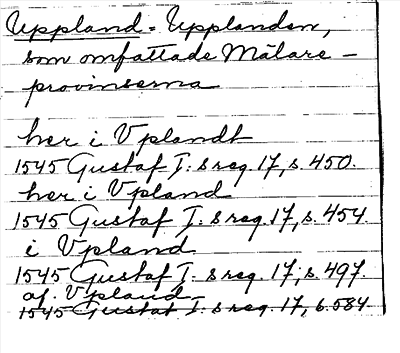 Uppland = Upplanden,
som omfattade Mälare-
provinserna
her i Vplandt
1545 Gustaf I:s reg. 17, s. 450.
her i Vpland
1545 Gustaf I:s reg. 17, s. 454.
i Vpland
1545 Gustaf I:s reg. 17, s. 497.
af Vpland
1545 Gustaf I:s reg. 17, s. 584